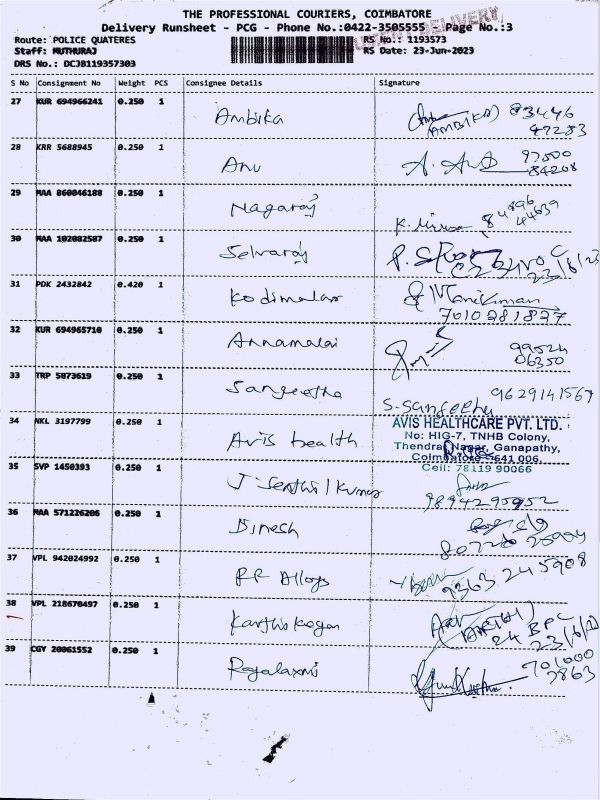 THE PROFESSIONAL COURIERS, COIMBATORE
Delivery Runsheet - PCG - Phone No.:0422-3505555 Page No.:3
DELIVERY
Route: POLICE QUATERES RS No.: 1193573
Staff: MUTHURAJ RS Date: 23-Jun-2023
DRS No.: DCJB119357303
S No Consignment No Weight PCS Consignee Details Signature
27 KUR 694966241 0.250 1 Ambika (AMBIKA) 83446
47283
28 KRR 5688945 0.250 1 Anu A. Anu 97500
84208
29 MAA 860046188 0.250 1 Nagaraj K. 84896
44639
30 MAA 102082587 0.250 1 Selvaraj
23/6/23
31 PDK 2432842 0.420 1 Kodimalar Manikman
7010281827
32 KUR 694965710 0.250 1 Annamalai 99524
06350
33 TRP 5073619 0.250 1 Sangeetha 9629141567
S. Sangeetha
34 NKL 3197799 0.250 1 Avis health AVIS HEALTHCARE PVT. LTD.
No: HIG-7, TNHB Colony,
Thendral Nagar, Ganapathy,
Coimbatore - 641 006.
Cell: 78119 90066
35 SVP 1450393 0.250 1 J Senthil kumar
9894295952
36 MAA 571226206 0.250 1 Dinesh
37 VPL 942024992 0.250 1 RR Alloys 9363 245908
38 VPL 218670497 0.250 1 Karthikeyan
24 BPC
23/6/23
39 CGY 20061552 0.250 1 Rajalaxmi 701000
2863